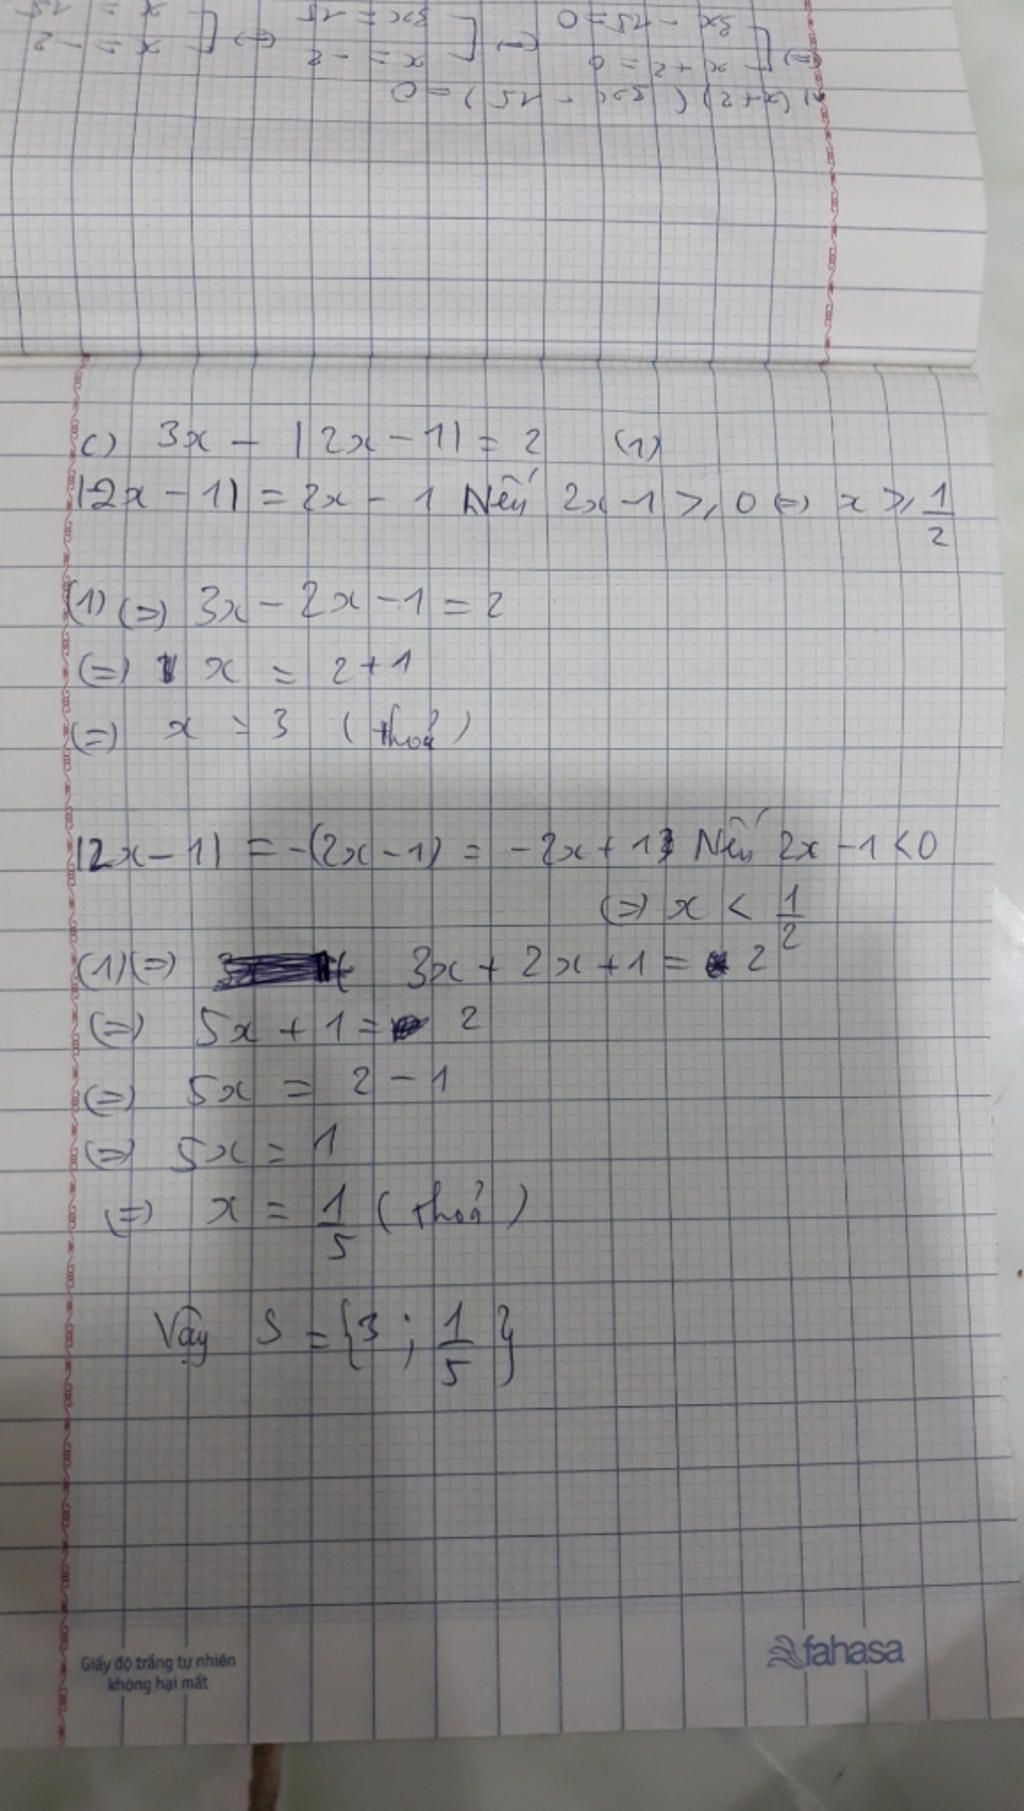 c) 3x - |2x - 1| = 2 (1)
|2x - 1| = 2x - 1 Nếu 2x - 1 ⩾ 0 (=) x ⩾ 1/2
(1) (=) 3x - 2x - 1 = 2
(=) x = 2 + 1
(=) x = 3 (thoả)
|2x - 1| = -(2x - 1) = -2x + 1 Nếu 2x - 1 < 0
(=) x < 1/2
(1) (=) 3x + 2x + 1 = 2
(=) 5x + 1 = 2
(=) 5x = 2 - 1
(=) 5x = 1
(=) x = 1/5 (thoả)
Vậy S = {3 ; 1/5}
Giấy độ trắng tự nhiên
không hại mắt
fahasa